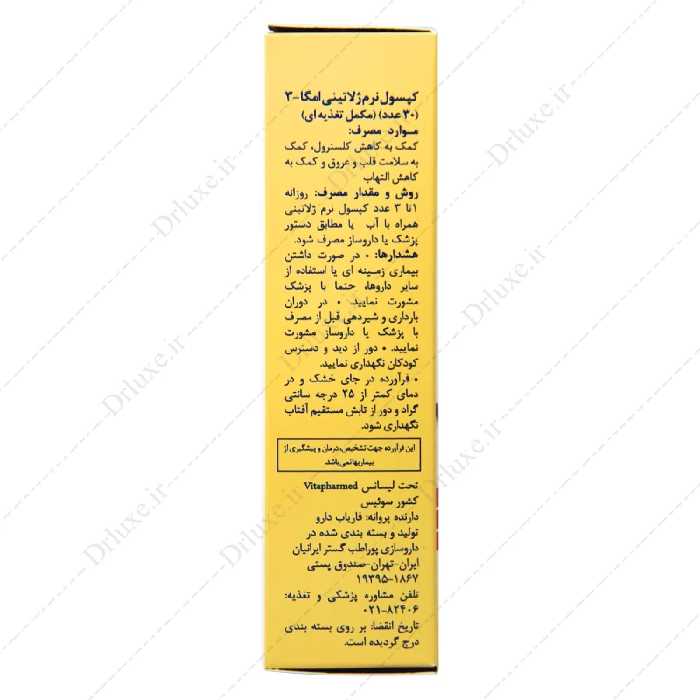 کپسول نرم ژلاتینی امگا-۳
(۳۰ عدد) (مکمل تغذیه ای)
موارد مصرف:
کمک به کاهش کلسترول، کمک
به سلامت قلب و عروق و کمک به
کاهش التهاب
روش و مقدار مصرف: روزانه
۱ تا ۳ عدد کپسول نرم ژلاتینی
همراه با آب یا مطابق دستور
پزشک یا داروساز مصرف شود.
هشدارها: • در صورت داشتن
بیماری زمینه ای یا استفاده از
سایر داروها، حتما با پزشک
مشورت نمایید. • در دوران
بارداری و شیردهی قبل از مصرف
با پزشک یا داروساز مشورت
نمایید. • دور از دید و دسترس
کودکان نگهداری نمایید.
• فرآورده در جای خشک و در
دمای کمتر از ۲۵ درجه سانتی
گراد و دور از تابش مستقیم آفتاب
نگهداری شود.
این فرآورده جهت تشخیص، درمان و پیشگیری از
بیماریها نمی باشد.
تحت لیسانس Vitapharmed
کشور سوئیس
دارنده پروانه: فاریاب دارو
تولید و بسته بندی شده در
داروسازی پوراطب گستر ایرانیان
ایران-تهران-صندوق پستی
۱۹۳۹۵-۱۸۶۷
تلفن مشاوره پزشکی و تغذیه:
۰۲۱-۸۲۴۰۶
تاریخ انقضا: بر روی بسته بندی
درج گردیده است.
Drluxe.ir